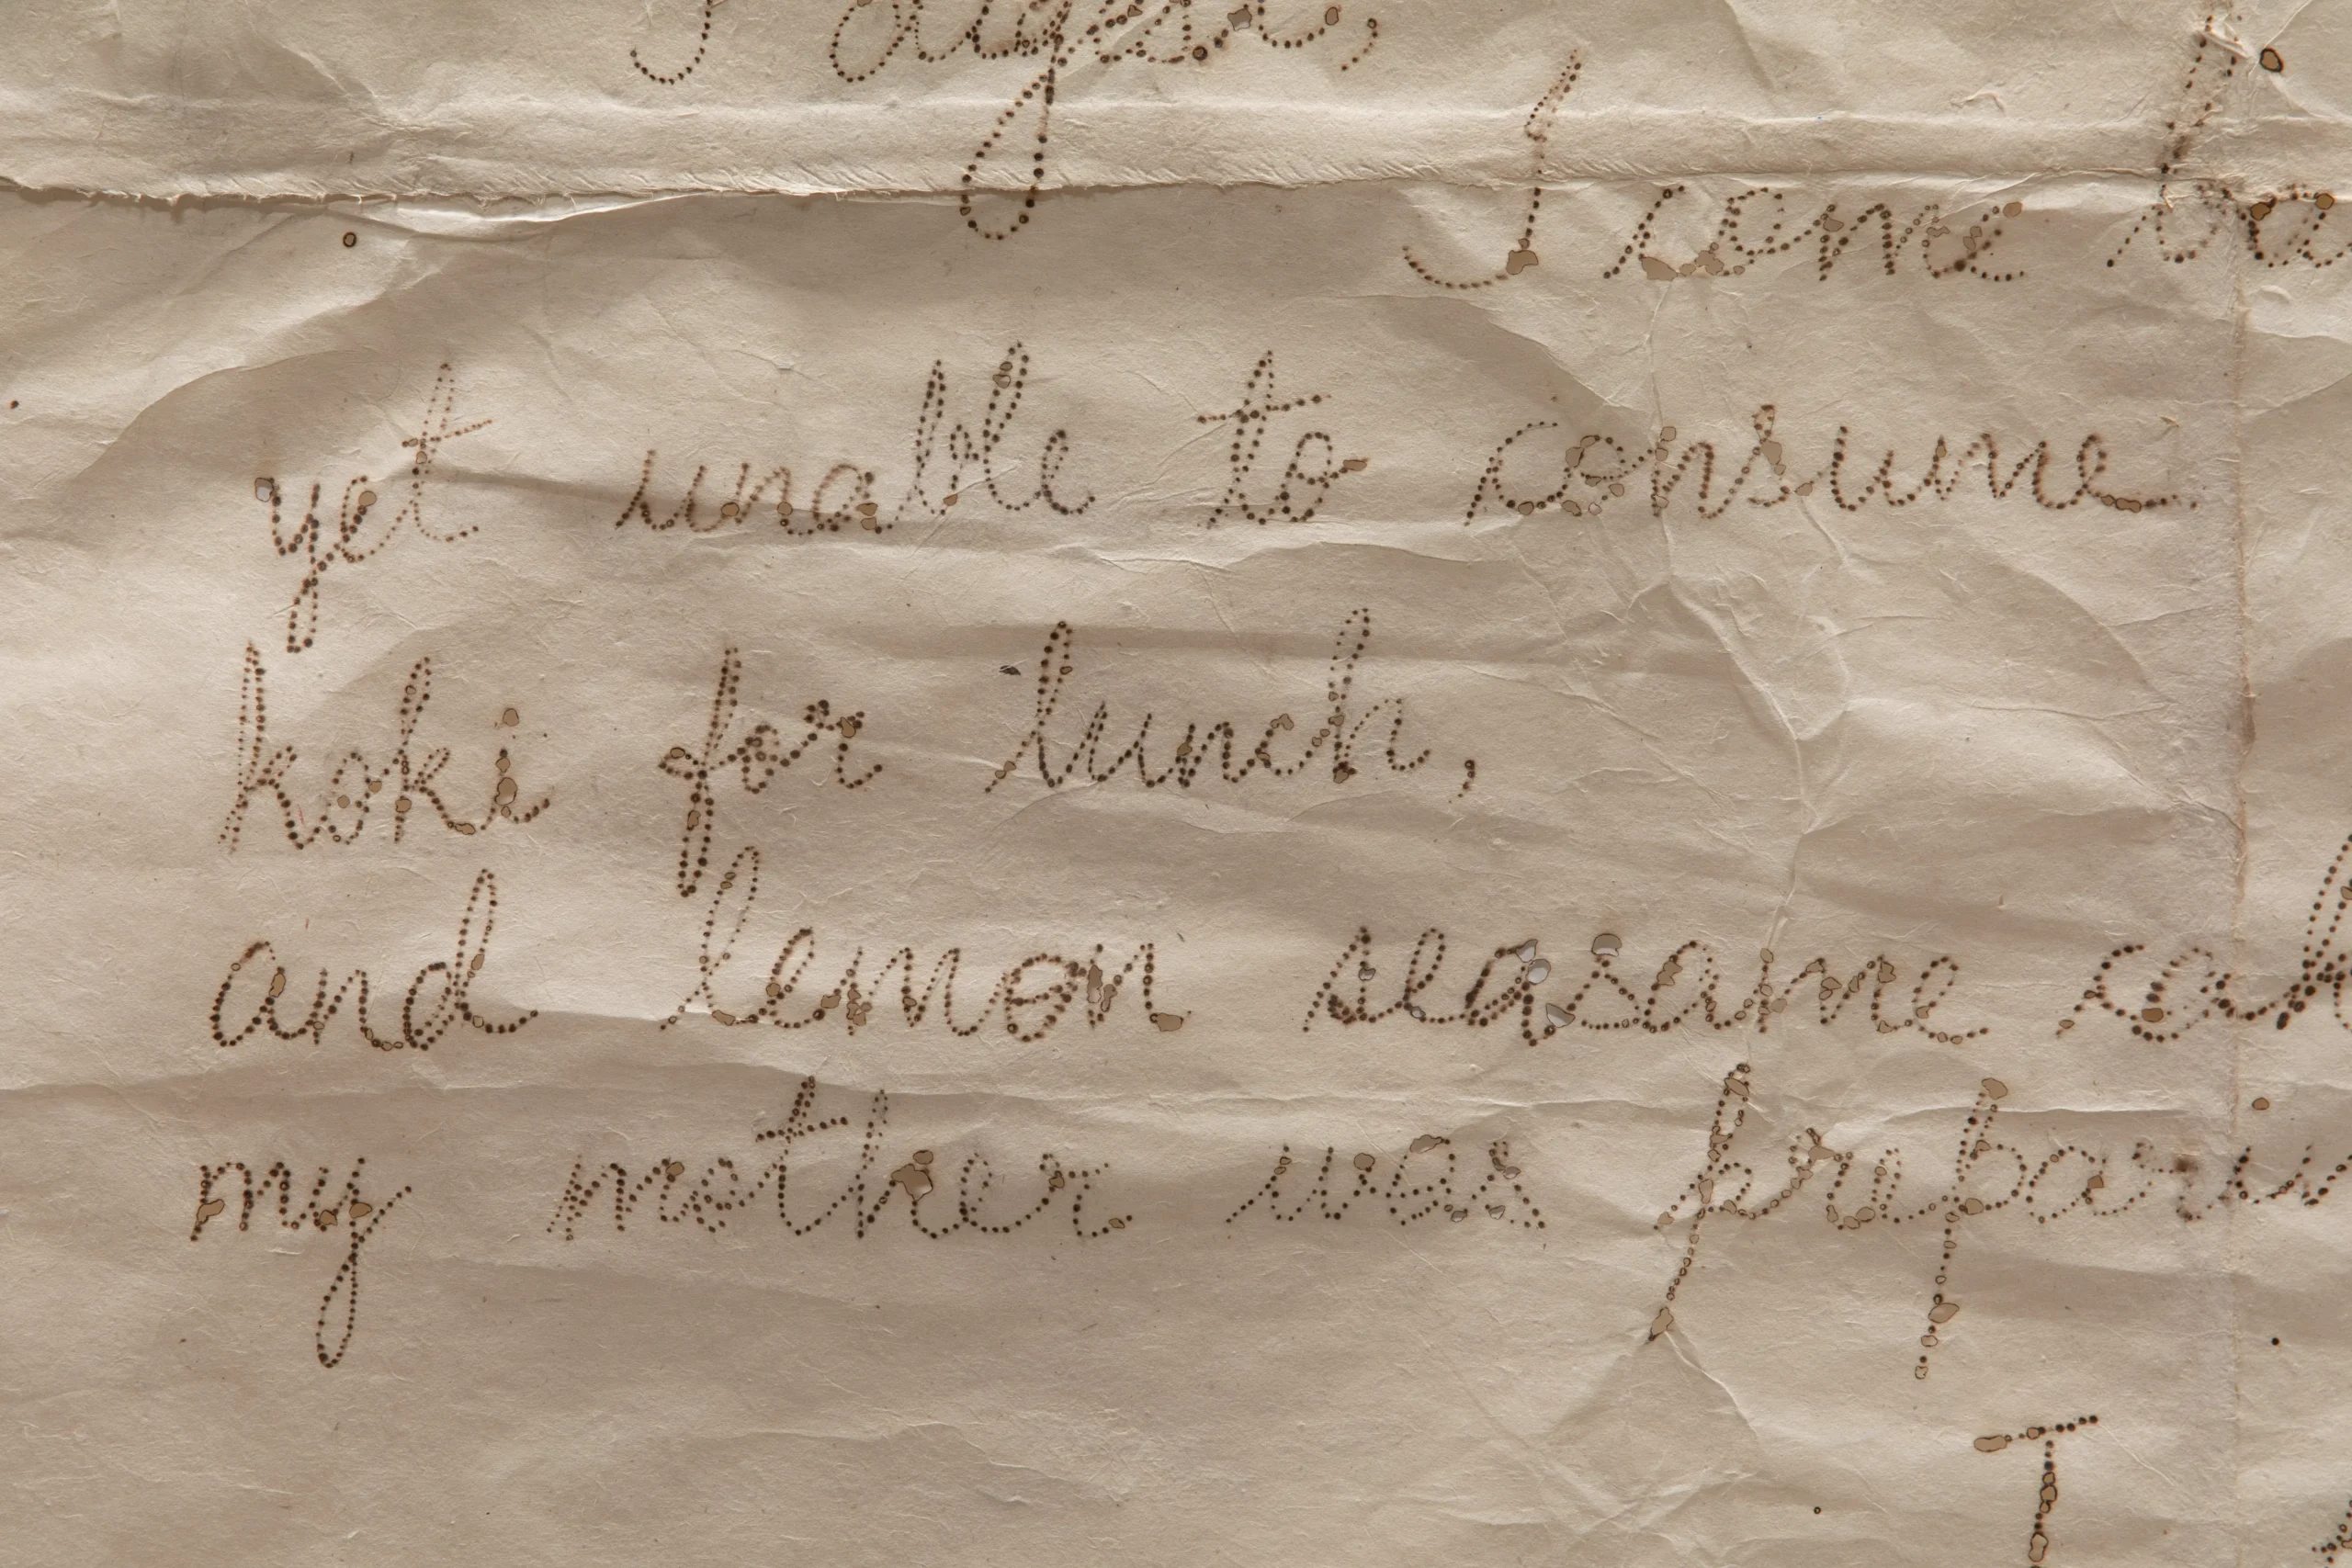 I digest,
I come ba
yet unable to consume
koki for lunch,
and lemon seasame cak
my mother was prepari
T